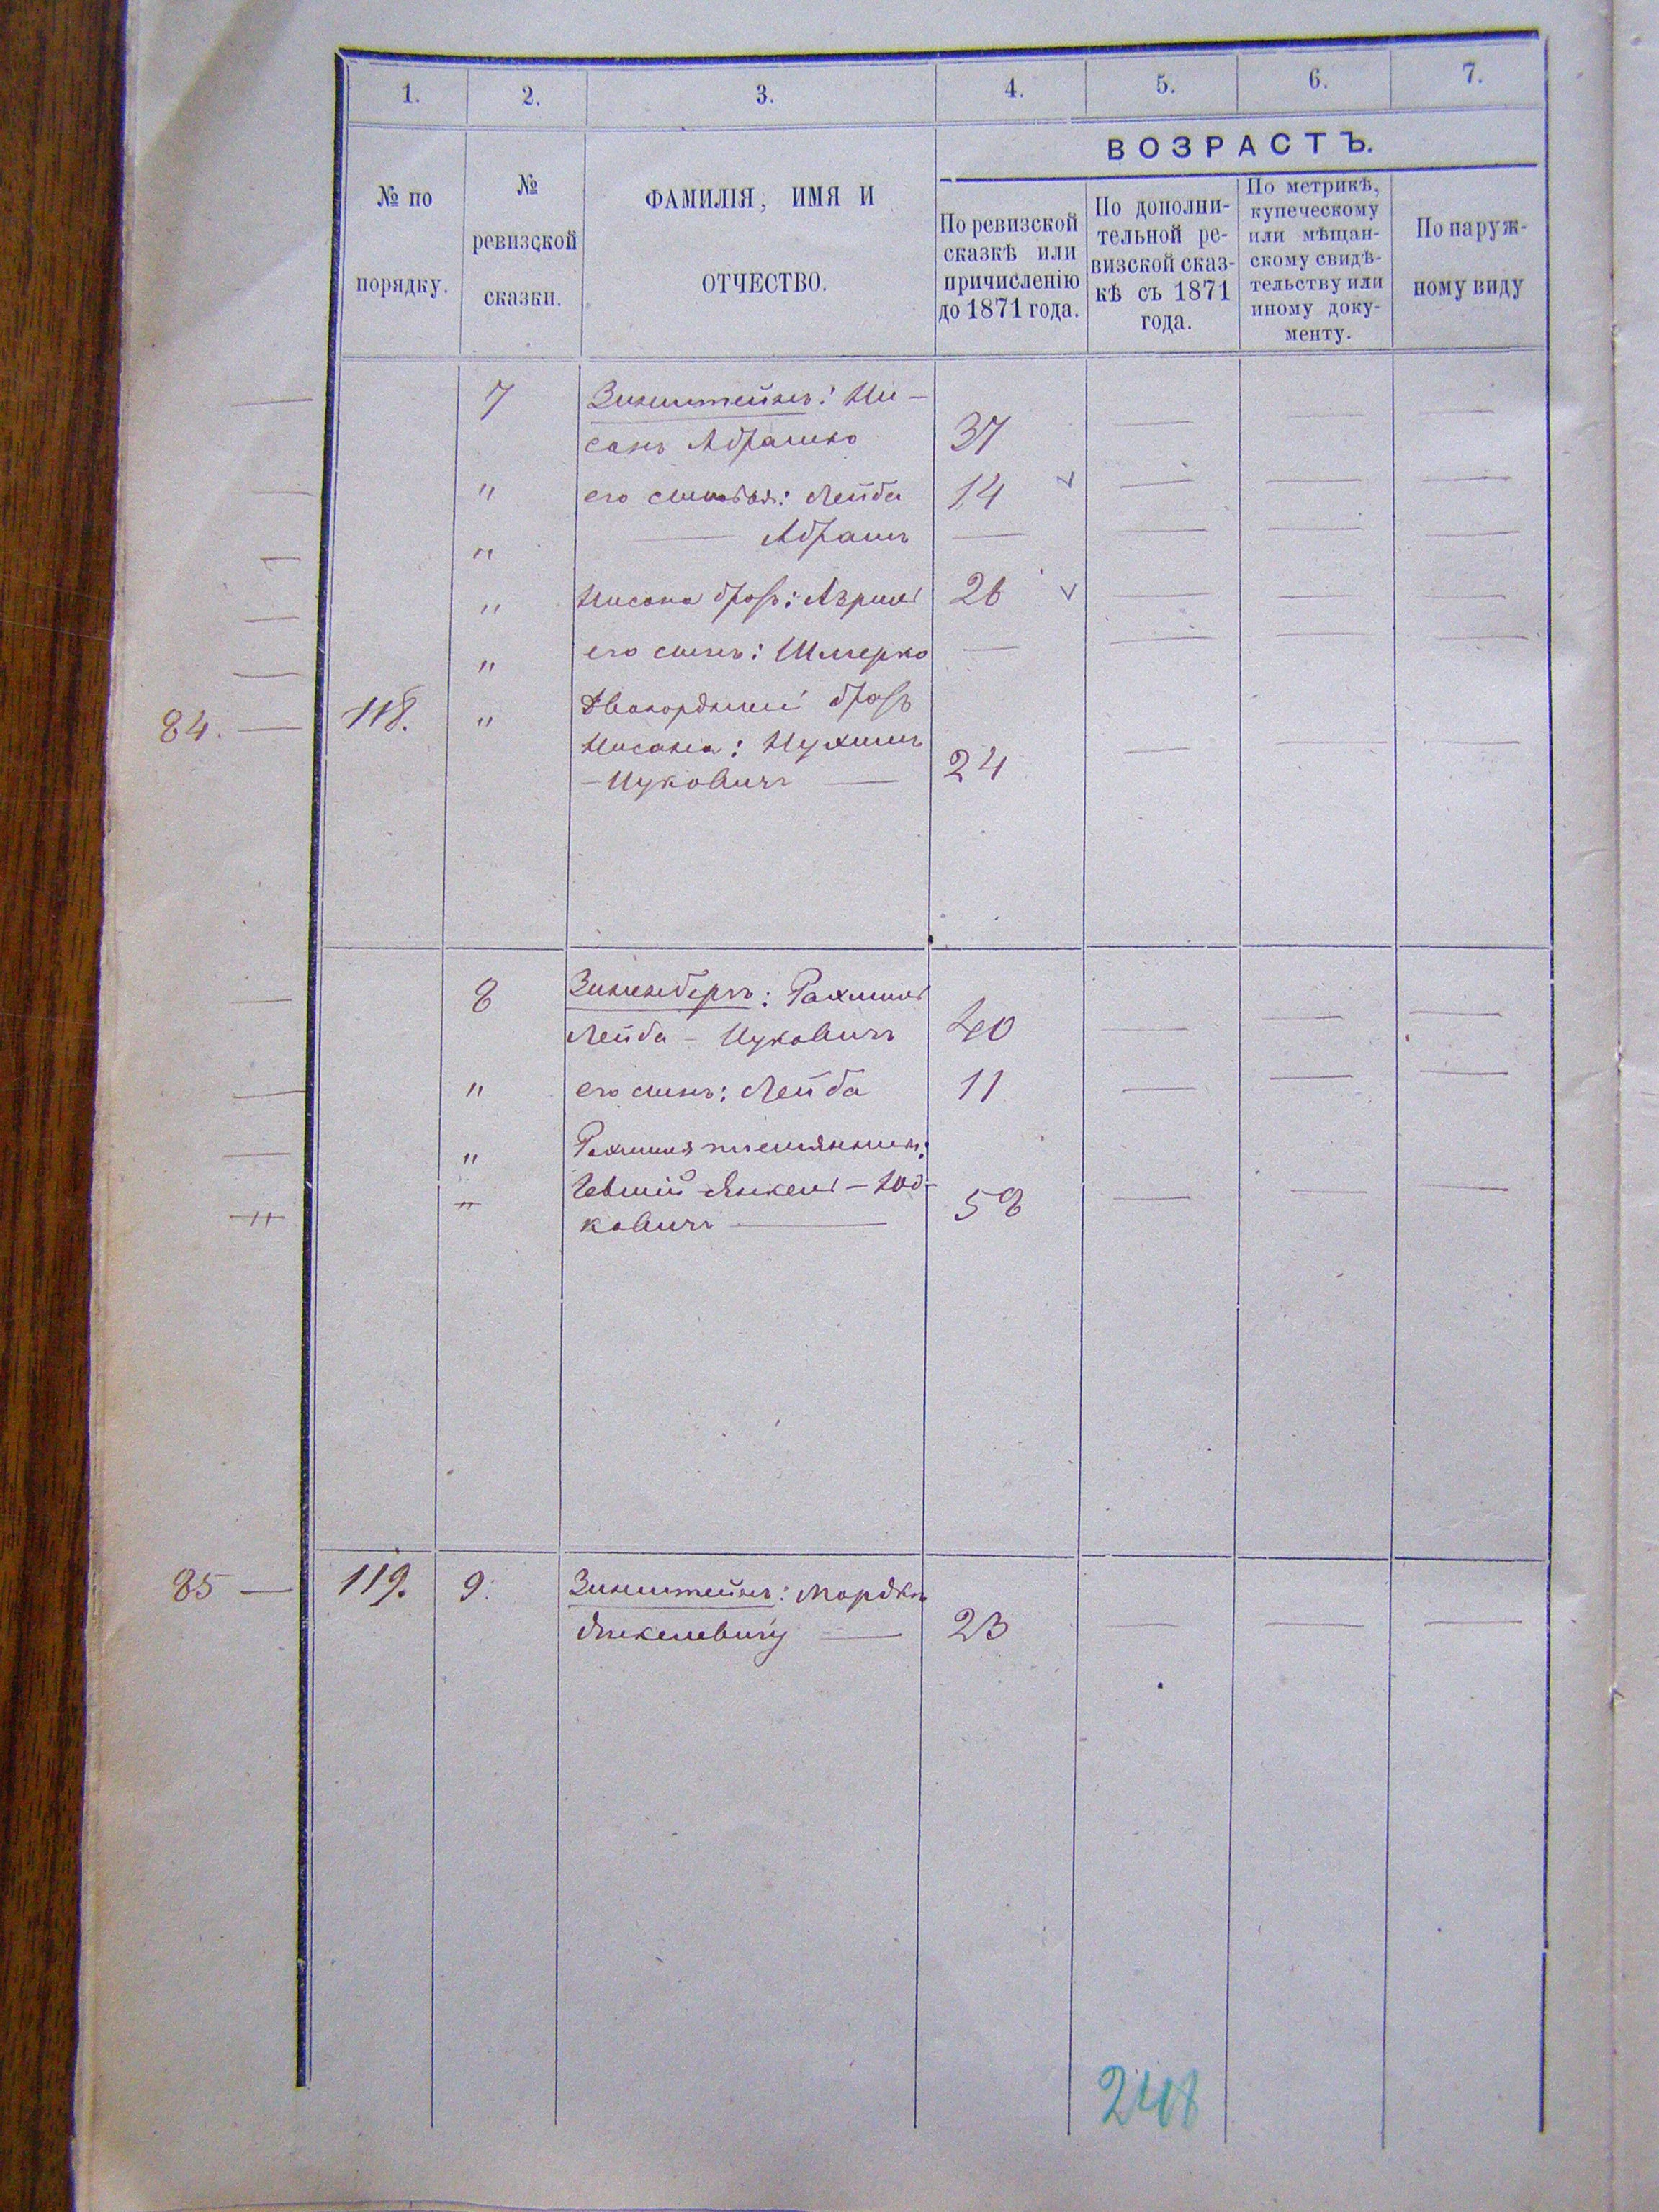 1. 2. 3. 4. 5. 6. 7.
ВОЗРАСТЪ.
№ по
порядку.
№
ревизской
сказки.
ФАМИЛІЯ, ИМЯ И
ОТЧЕСТВО.
По ревизской
сказкѣ или
причисленію
до 1871 года.
По дополни-
тельной ре-
визской сказ-
кѣ съ 1871
года.
По метрикѣ,
купеческому
или мѣщан-
скому свидѣ-
тельству или
иному доку-
менту.
По наруж-
ному виду
— 7 Зинштейнъ: Ни- — — —
санъ Абрамко 37
— " его сыновья: Лейба 14 — — —
— " — Абрамъ — — — —
— " Нисана братъ: Азриль 26 — — —
— " его сынъ: Шмерко — — — —
84. — 118. " Двоюродный братъ
Нисана: Нухимъ — — —
- Ицковичъ — 24
— 8 Зиненбергъ: Рахмиль
Лейба - Ицковичъ 40 — — —
— " его сынъ: Лейба 11 — — —
— " Рахмиля племянникъ:
" " Янкель - Иод-
ковичъ — 58 — — —
85 — 119. 9. Зинштейнъ: Мордко
Янкелевичъ — 23 — — —
248